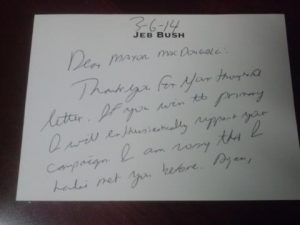 3-6-14
JEB BUSH
Dear Mayor MacDougall:
Thank you for your thoughtful
letter. If you win the primary
I will enthusiastically support your
campaign. I am sorry that I
hadn't met you before. Again,